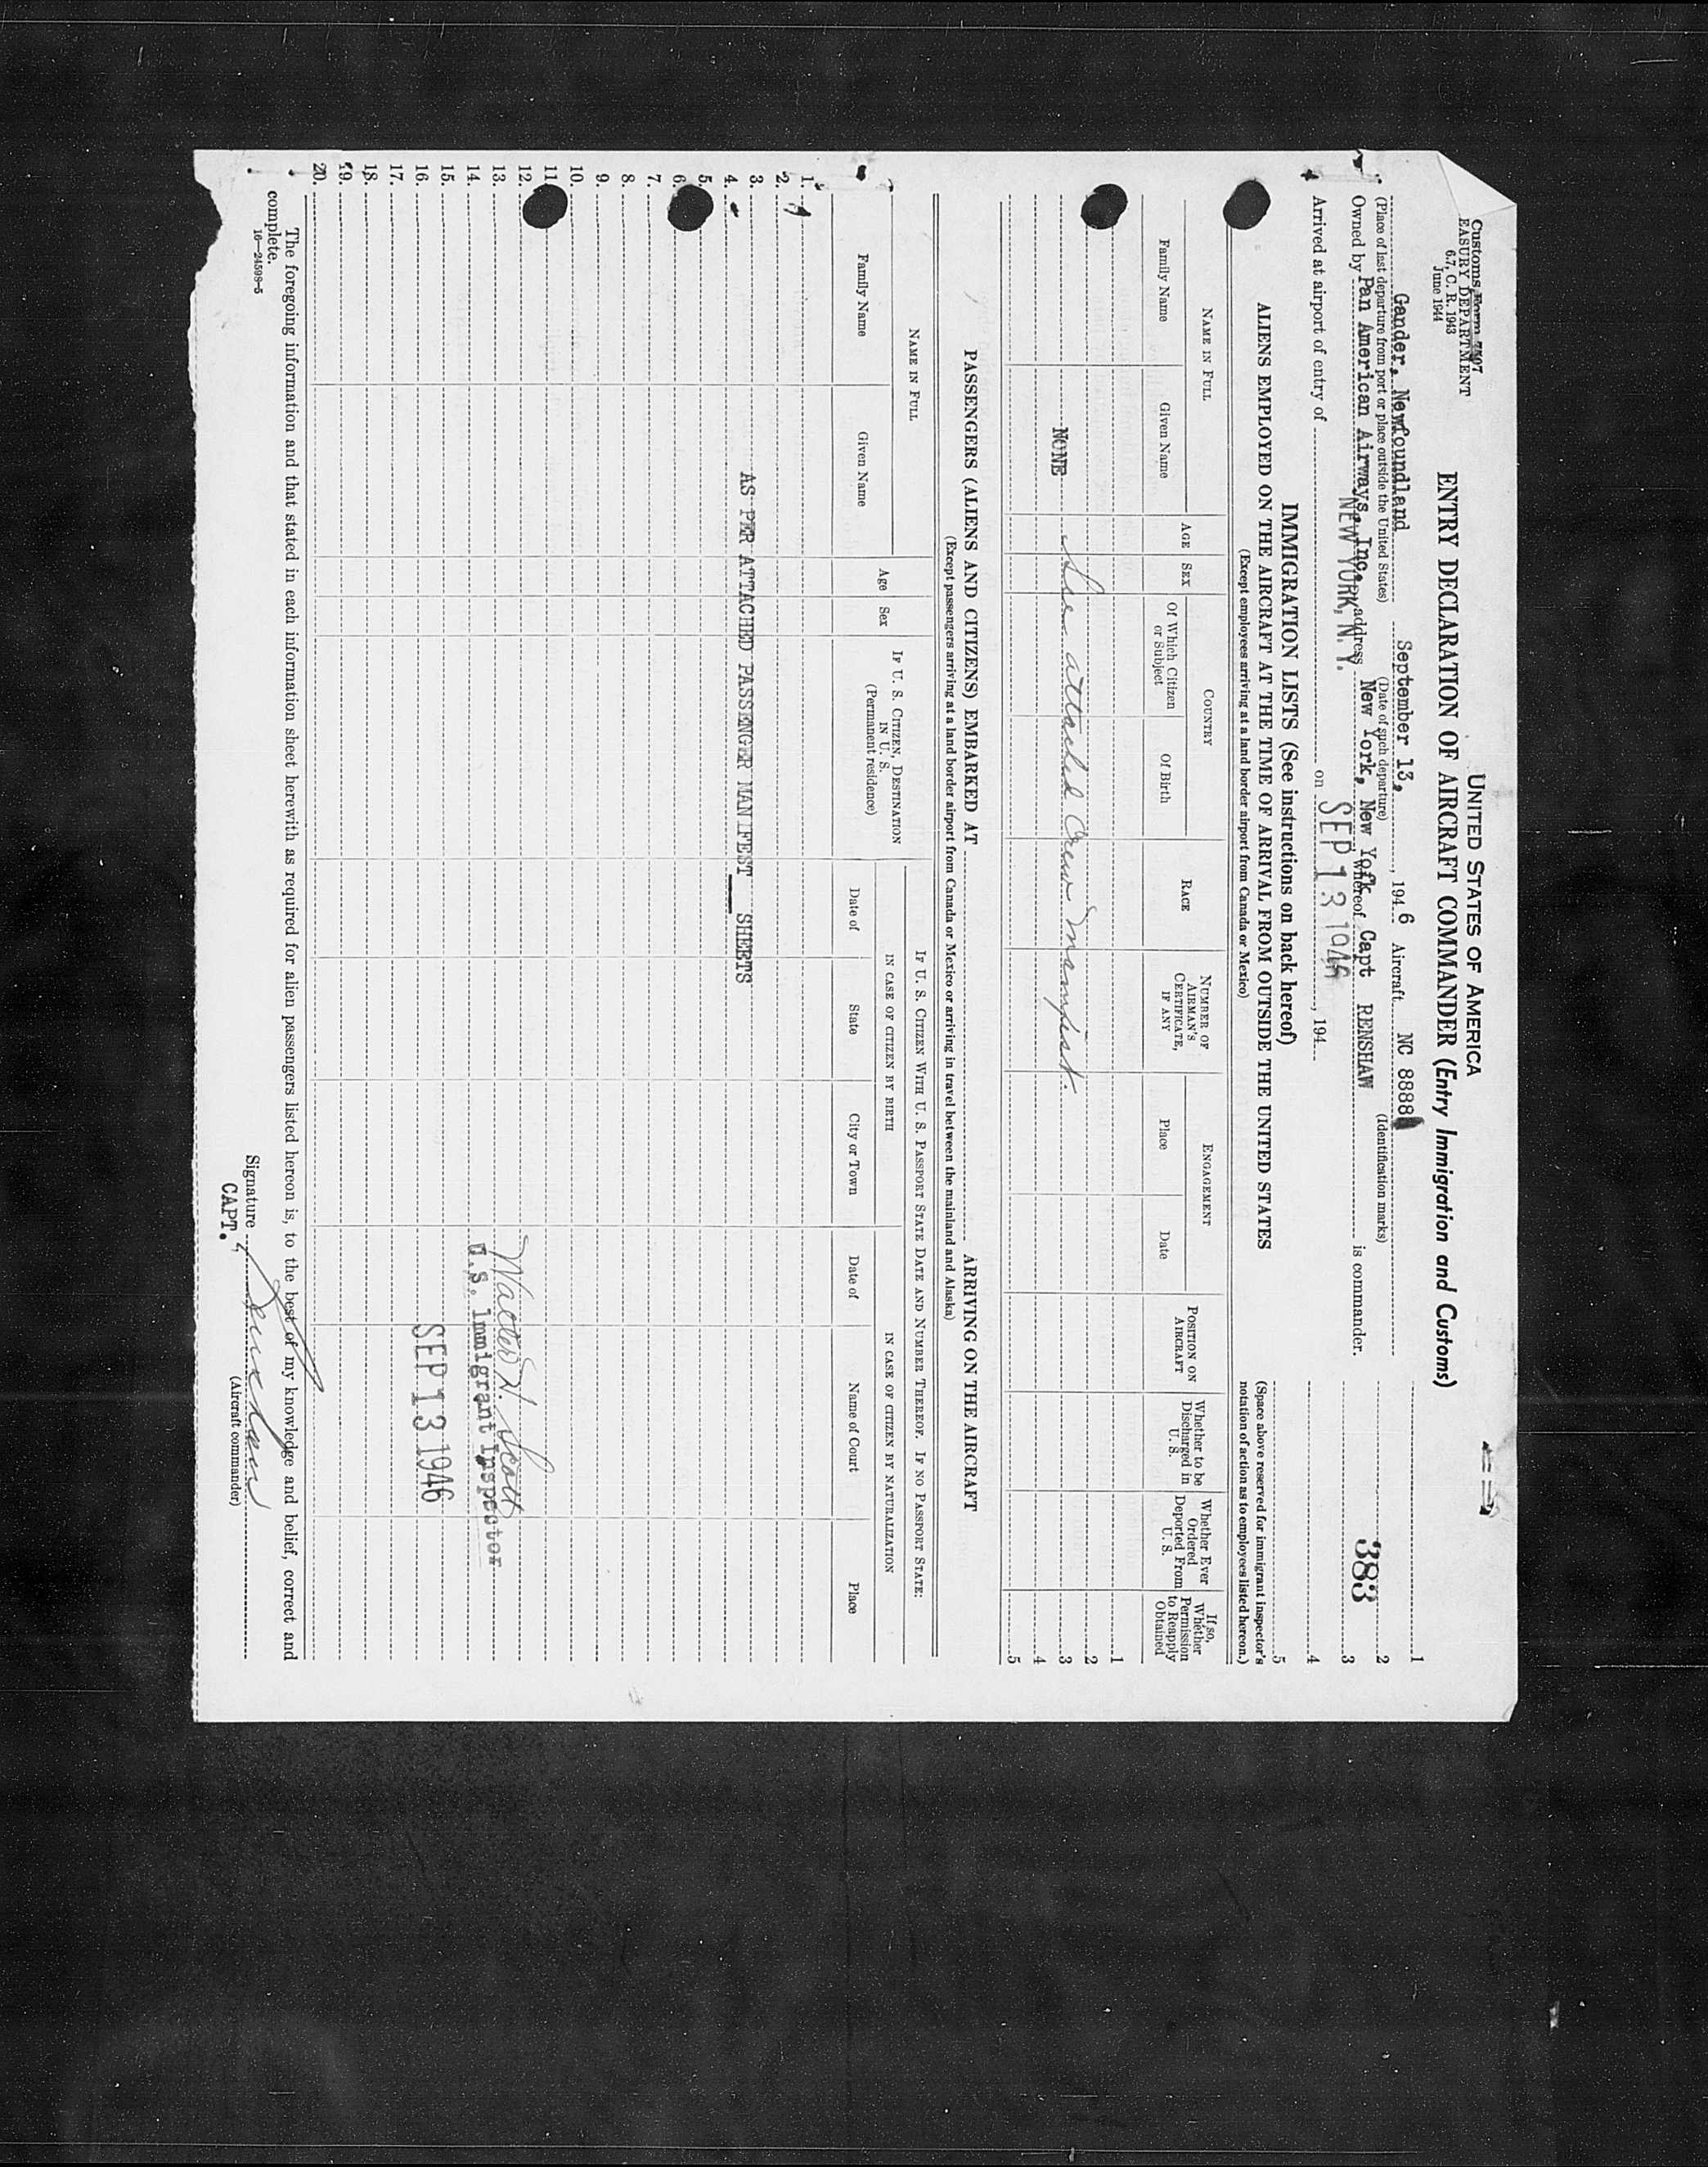 Customs Form 7507
EASURY DEPARTMENT
6.7, C. R. 1943
June 1944
UNITED STATES OF AMERICA
ENTRY DECLARATION OF AIRCRAFT COMMANDER (Entry Immigration and Customs)
Gander, Newfoundland September 13, , 194 6 Aircraft NC 8888
(Place of last departure from port or place outside the United States) (Date of such departure) (Identification marks)
Owned by Pan American Airways, Inc. address New York, New York whereof Capt RENSHAW is commander.
NEW YORK, N.Y. SEP 13 1946
Arrived at airport of entry of on , 194
1
2
383
3
4
5
IMMIGRATION LISTS (See instructions on back hereof)
ALIENS EMPLOYED ON THE AIRCRAFT AT THE TIME OF ARRIVAL FROM OUTSIDE THE UNITED STATES
(Except employees arriving at a land border airport from Canada or Mexico)
(Space above reserved for immigrant inspector's notation of action as to employees listed hereon.)
NAME IN FULL
Family Name Given Name
AGE
SEX
COUNTRY
Of Which Citizen or Subject
Of Birth
RACE
NUMBER OF AIRMAN'S CERTIFICATE, IF ANY
ENGAGEMENT
Place Date
POSITION ON AIRCRAFT
Whether to be Discharged in U. S.
Whether Ever Ordered Deported From U. S.
If so, Whether Permission to Reapply Obtained
1
2
NONE See attached Crew Manifest. 3
4
5
PASSENGERS (ALIENS AND CITIZENS) EMBARKED AT ARRIVING ON THE AIRCRAFT
(Except passengers arriving at a land border airport from Canada or Mexico or arriving in travel between the mainland and Alaska)
NAME IN FULL
Family Name Given Name
Age
Sex
IF U. S. CITIZEN, DESTINATION IN U. S.
(Permanent residence)
IF U. S. CITIZEN WITH U. S. PASSPORT STATE DATE AND NUMBER THEREOF. IF NO PASSPORT STATE:
IN CASE OF CITIZEN BY BIRTH IN CASE OF CITIZEN BY NATURALIZATION
Date of State City or Town Date of Name of Court Place
1.
2.
3.
AS PER ATTACHED PASSENGER MANIFEST ___ SHEETS
4.
5.
6.
7.
8.
9.
10.
11
12.
13.
Walter H. Scott
14.
U.S. Immigrant Inspector
15.
16.
SEP 13 1946
17.
18.
19.
20.
The foregoing information and that stated in each information sheet herewith as required for alien passengers listed hereon is, to the best of my knowledge and belief, correct and
complete.
16—24598-5
Signature Renshaw
CAPT. (Aircraft commander)